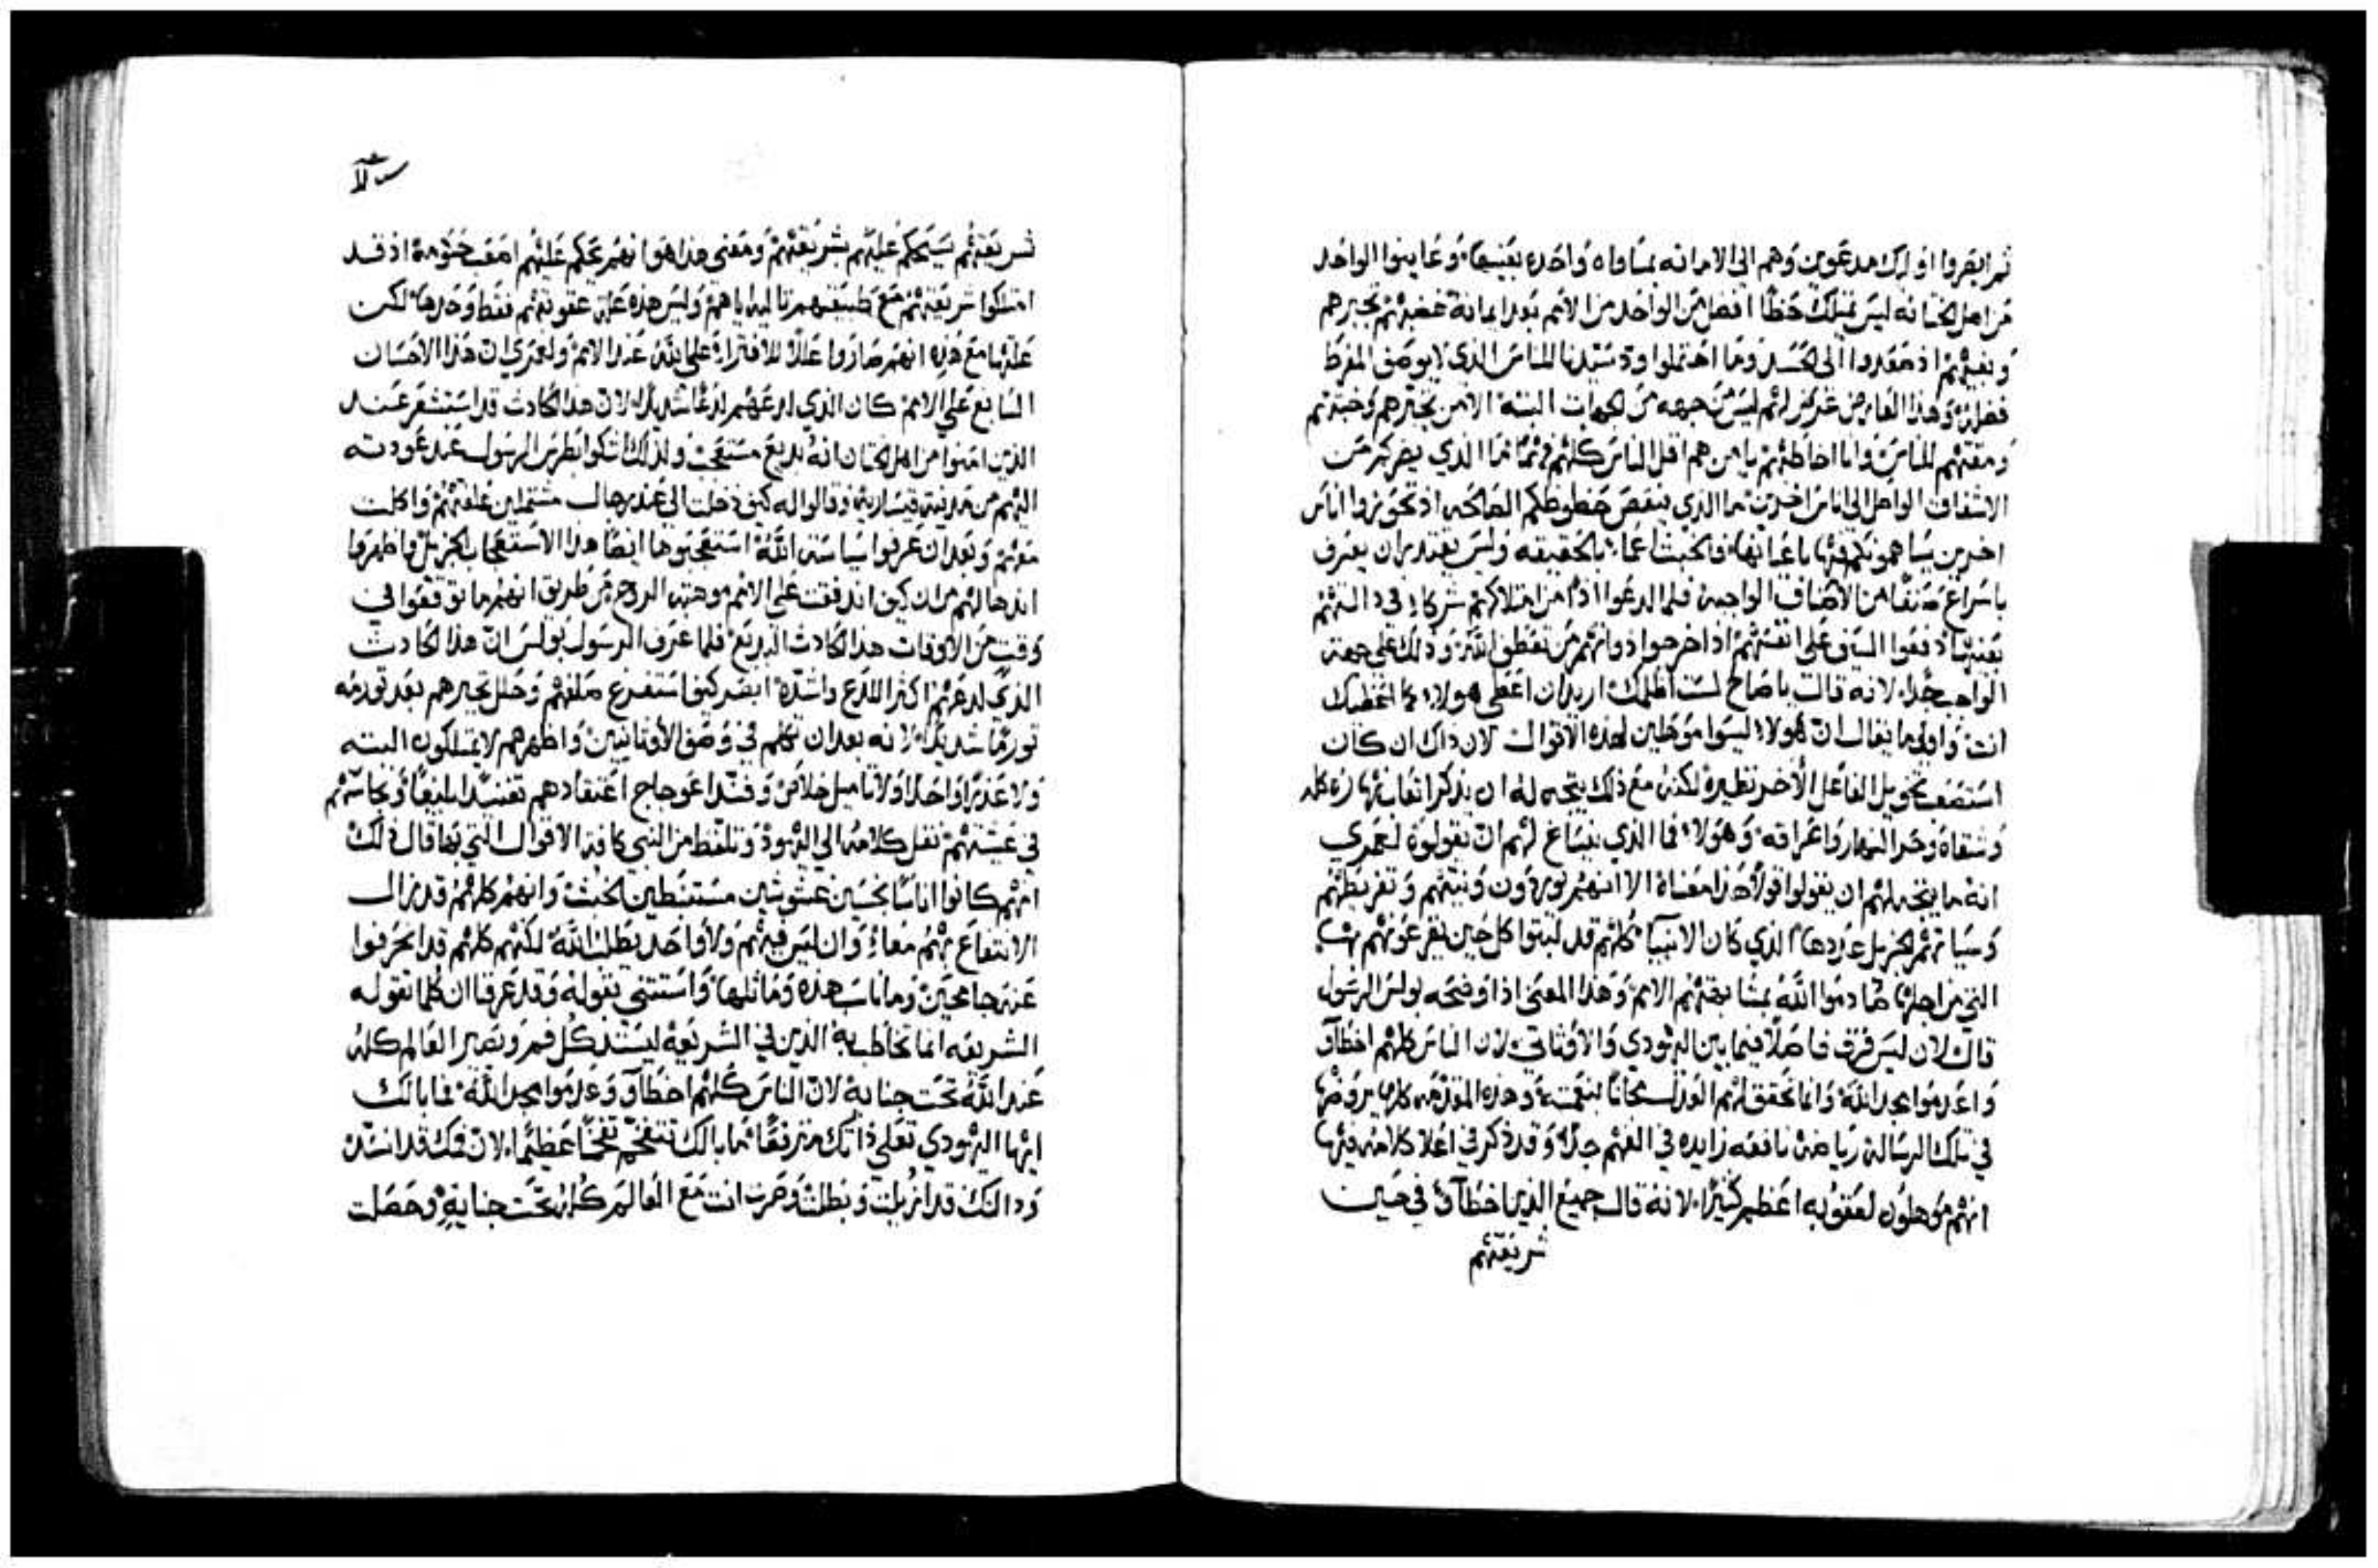 ثم ابصروا اوليك مدعوين وهم الى الامانه بمساواه واحده بعينها وعاينوا الواحد
من اهل الختانه ليس يمتلك حظا افضل من الواحد من الامم بعد ايمانه تجبرهم
اذ الى الحسد وما احتملوا للناس الذي لا يوصف المفرط
وهذا العارض عرض لهم ليس من جهه من الجهات البته الا من تجبرهم وخبثهم
ومقتهم للناس وانا اخاطبهم يا من هم اقل الناس كلهم فهما ما الذي يضركم من
الاشفاق الواصل الى اناس اخرين ما الذي ينقص حظوظكم الصالحه اذ تحوزوا اناس
اخرين يساهمونكم فيها باعيانها فالخبث اعما بالحقيقه وليس يقتدر ان يعرف
باسراع صنفا من الاصناف الواجبه فلما لدغوا اذا من امتلاكهم شركاء في دالتهم
بعينها دفعوا السيف على انفسهم اذ اخرجوا ذواتهم من تعطف الله وذلك على جهة
الواجب جدا لانه قال يا صاح لست اظلمك اريد ان اعطي هولاء كما اعطيتك
انت واولى ما يقال ان هولاء ليسوا موهلين لهذه الاقوال لان ذاك ان كان
استصعب تخويل الفاعل الاخر نظيره لكنه مع ذلك يتجه له ان يذكر اتعاب نهاره كله
وشقاه وحر النهار واعراقه وهولاء فما الذي ينساغ لهم ان يقولوه لعمري
انه ما يتجه لهم ان يقولوا قولا هذا معناه الا انهم يوردون ونيتهم وتفريطهم
وسياتهم الجزيل عددها الذي كان الانبيا كلهم قد لبثوا كل حين يقرعونهم بها
التي من اجلها صادموا الله بمشابهتهم الامم وهذا المعنى اذ اوضحه بولس الرسول
قال لان ليس فرق فاصلا فيما بين اليهودي والاوثاني لان الناس كلهم اخطاوا
واعدموا مجد الله وانما تحقق لهم العدل مجانا بنعمته وهذه المقدمه كلها يروضها
في تلك الرساله رياضه نافعه زايده في الفهم جدا وقد ذكر في اعلا كلامه فيها
انهم موهلون لعقوبه اعظم كثيرا لانه قال جميع الذين اخطاوا في حين
شريعتهم
شريعتهم سيحكم عليهم بشريعتهم ومعنى هذا هو انهم يحكم عليهم اصعب حكومة اذ قد
امتلكوا شريعتهم مع طبيعتهم اياهم وليس هذه علة عقوبتهم فقط وحدها لكن
علتها مع هذه انهم صاروا عللا للافتراء على الله عند الامم ولعمري ان هذا الاحسان
السابغ على الامم كان الذي لدغهم لدغا شديدا لان هذا الحادث قد استشعر عند
الذين امنوا من اهل الختان انه بديع مستعجب ولذلك اشتكوا بطرس الرسول عند عودته
اليهم من مدينة قيساريه وقالوا له كيف دخلت الى عند رجال مشتملين غلفتهم واكلت
معهم وبعد ان عرفوا سياسة الله استعجبوها ايضا هذا الاستعجاب الجزيل واظهروا
كيف اندفقت على الامم موهبة الروح من طريق انهم ما توقعوا في
وقت من الاوقات هذا الحادث البديع فلما عرف الرسول بولس ان هذا الحادث
الذي لدغهم اكثر اللدغ واشده ابصر كيف استفرغ صلفهم وحلل تجبرهم بعد تورمه
تورما شديدا لانه بعد ان تكلم في وصف الاوثانيين واظهرهم لا يمتلكون البته
ولا عذرا واحدا ولا تاميل خلاص وفند اعوجاج اعتقادهم تفنيدا بليغا ونجاستهم
في عيشتهم نقل كلامه الى اليهود وتلقط من النبي كافة الاقوال التي بها قال ذلك
انهم كانوا اناسا نجسين غشوشين مستنبطين الخبث وانهم كلهم قد زال
الانتفاع بهم معا وان ليس فيهم ولا واحد يطلب الله لكنهم كلهم قد انحرفوا
عنه جامحين وما ناسب هذه وماثلها واستثنى بقوله وقد عرفنا ان كلما تقوله
الشريعه انما تخاطب به الذين في الشريعه ليستد كل فم ويصير العالم كله
عند الله تحت جنايه لان الناس كلهم اخطاوا وعدموا مجد الله فما بالك
ايها اليهودي تعلي ذاتك مترفعا ما بالك تتفخم تفخما عظيما لان فمك قد انسد
ودالتك قد ازيلت وبطلت وصرت انت مع العالم كله تحت جنايه وحصلت